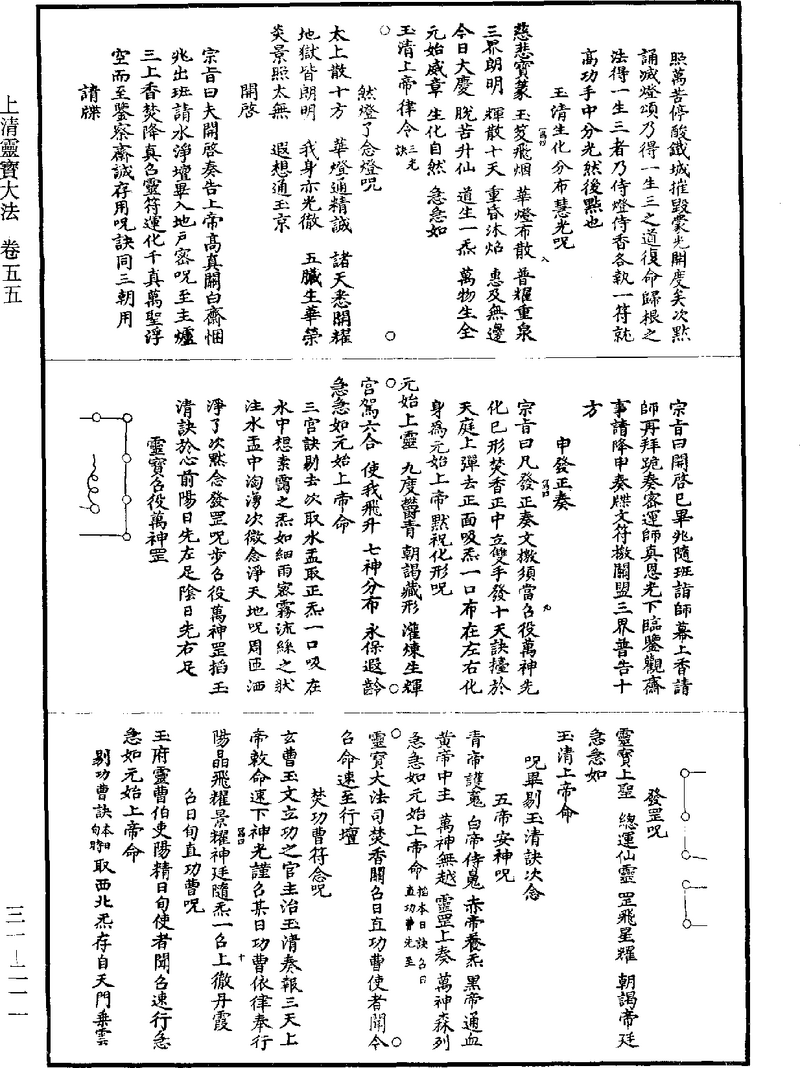 上清靈寶大法 卷五五
三一—二一一
照萬苦停酸鐵城摧毀蒙光開度矣次點
誦滅燈頌乃得一生三之道復命歸根之
法得一生三者乃侍燈侍香各執一符就
高功手中分光然後點也
玉清生化分布慧光呪
慈悲寶篆 玉芨飛烟 華燈布散 普耀重泉
三界朗明 輝散十天 重昏沐焰 惠及無邊
今日大慶 脫苦升仙 道生一炁 萬物生全
元始威章 生化自然 急急如
玉清上帝律令 三光訣
然燈了念燈呪
太上散十方 華燈通精誠 諸天悉開耀
地獄皆朗明 我身亦光徹 五臟生華榮
炎景照太無 遐想通玉京
開啓
宗旨曰夫開啓奏告上帝高真關白齋悃
兆出班請水淨壇畢入地戶密呪至主爐
三上香焚降真召靈符運化千真萬聖浮
空而至鑒察齋誠存用呪訣同三朝用
請牒
宗旨曰開啓已畢兆隨班詣師幕上香請
師再拜跪奏密運師真恩光下臨鑒觀齋
事請降申奏牒文符檄關盟三界普告十
方
申發正奏
宗旨曰凡發正奏文檄須當召役萬神先
化已形焚香正中立雙手發十天訣擡於
天庭上彈去正面吸炁一口布在左右化
身為元始上帝默祝化形呪
元始上靈 九度鬱青 朝謁藏形 灌煉生輝
宮駕六合 使我飛升 七神分布 永保遐齡
急急如元始上帝命
三宮訣剔去次取水盂取正炁一口吸在
水中想素靄之炁如細雨密霧流絲之狀
注水盂中洶湧次微念淨天地呪周匝洒
淨了次默念發罡呪步召役萬神罡掐玉
清訣於心前陽日先左足陰日先右足
靈寶召役萬神罡
發罡呪
靈寶上聖 總運仙靈 罡飛星耀 朝謁帝廷
急急如
玉清上帝命
呪畢剔玉清訣次念
五帝安神呪
青帝護䰟 白帝侍䰟 赤帝養炁 黑帝通血
黃帝中主 萬神無越 靈罡上奏 萬神森列
急急如元始上帝命 掐本日訣召日直功曹先至
靈寶大法司焚香關召日直功曹使者聞今
召命速至行壇
焚功曹符念呪
玄曹玉文立功之官主治玉清奏報三天上
帝敕命速下神光謹召某日功曹依律奉行
陽晶飛耀景耀神廷隨炁一召上徹丹霞
召日旬直功曹呪
玉府靈曹伯吏陽精日旬使者聞召速行急
急如元始上帝命
剔功曹訣 取西北炁存自天門乘雲